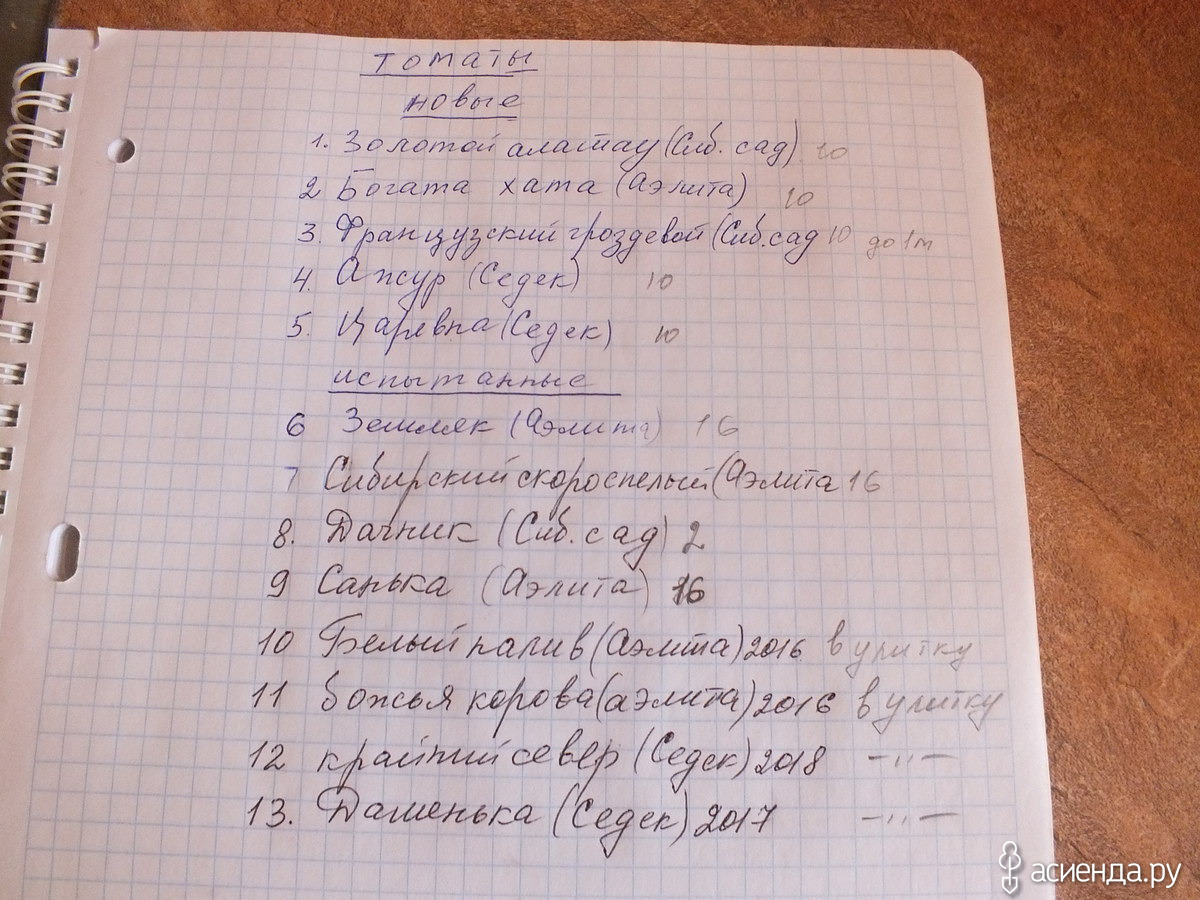 томаты
новые
1. Золотой алатау (Сиб. сад) 10
2 Богата хата (Аэлита) 10
3. Французский гроздевой (Сиб. сад 10 до 1м
4. Ажур (Седек) 10
5. Царевна (Седек) 10
испытанные
6 Земляк (Аэлита) 16
7 Сибирский скороспелый (Аэлита 16
8. Дачник (Сиб. сад) 2
9 Санька (Аэлита) 16
10 Белый налив (Аэлита) 2016 в улитку
11 божья корова (аэлита) 2016 в улитку
12 крайний север (Седек) 2018 -〃-
13. Дашенька (Седек) 2017 -〃-
асиенда.ру